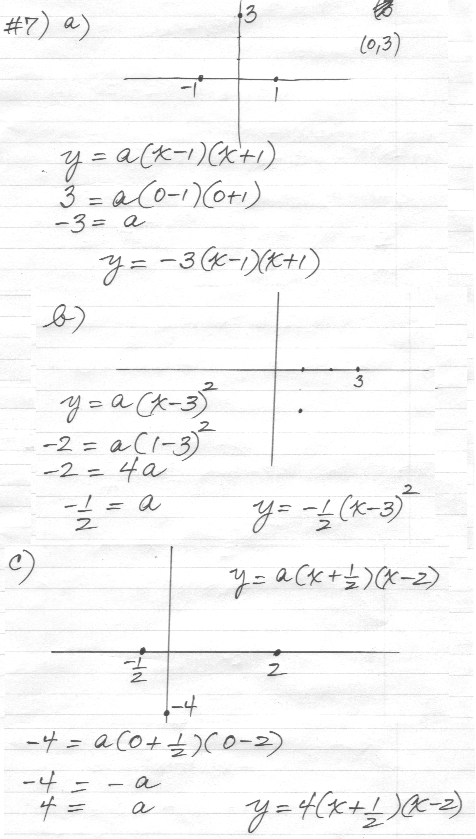 #7) a)
3
(0,3)
-1 1
y = a(x-1)(x+1)
3 = a(0-1)(0+1)
-3 = a
y = -3(x-1)(x+1)
b)
3
y = a(x-3)²
-2 = a(1-3)²
-2 = 4a
-1/2 = a y = -1/2(x-3)²
c)
y = a(x+1/2)(x-2)
-1/2 2
-4
-4 = a(0+1/2)(0-2)
-4 = -a
4 = a y = 4(x+1/2)(x-2)